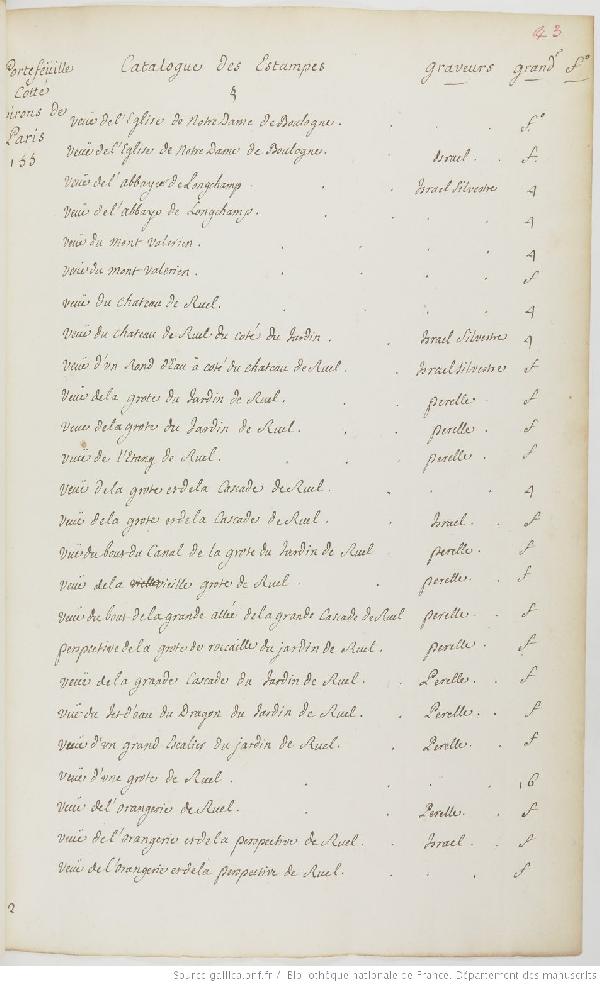 43
Portefeüille Catalogue Des Estampes graveurs grandr fo
Cotté §
irons de
Paris
155
Veuë de l'Eglise de Notre Dame de Boulogne. fo
Veuë de l'Eglise de Notre Dame de Boulogne. Israel. f.
Veuë de l'abbaye de Longchamp Israel Silvestre 4
Veuë de l'abbaye de Longchamp. 4
Veuë du mont Valerien. 4
Veuë du mont Valerien. f
Veuë du Chateau de Ruel. 4
Veuë du chateau de Ruel du coté du Jardin. Israel Silvestre 4
Veuë d'un Rond d'Eau à coté du chateau de Ruel. Israel Silvestre f
Veuë de la grote du Jardin de Ruel. perelle. f
Veuë de la grote du Jardin de Ruel. perelle. f
Veuë de l'Etang de Ruel. perelle. f
Veuë de la grote et de la Cascade de Ruel. 4
Veuë de la grote et de la Cascade de Ruel. Israel. f
Veuë du bout du Canal de la grote du Jardin de Ruel perelle. f
Veuë de la vieille grote de Ruel. perelle. f
Veuë du bout de la grande allée de la grande Cascade de Ruel perelle. f
perspective de la grote de rocaille du jardin de Ruel. perelle. f
Veuë de la grande Cascade du Jardin de Ruel. Perelle. f
Vuë du Jet d'eau du Dragon du Jardin de Ruel. Perelle. f
Veuë d'un grand Escalier du jardin de Ruel. Perelle. f
Veuë d'une grote de Ruel. 16
Veuë de l'orangerie de Ruel. Perelle. f
Veuë de l'orangerie et de la perspective de Ruel. Israel. f
Veuë de l'orangerie et de la perspective de Ruel. f
2
Source gallica.bnf.fr / Bibliothèque nationale de France. Département des manuscrits